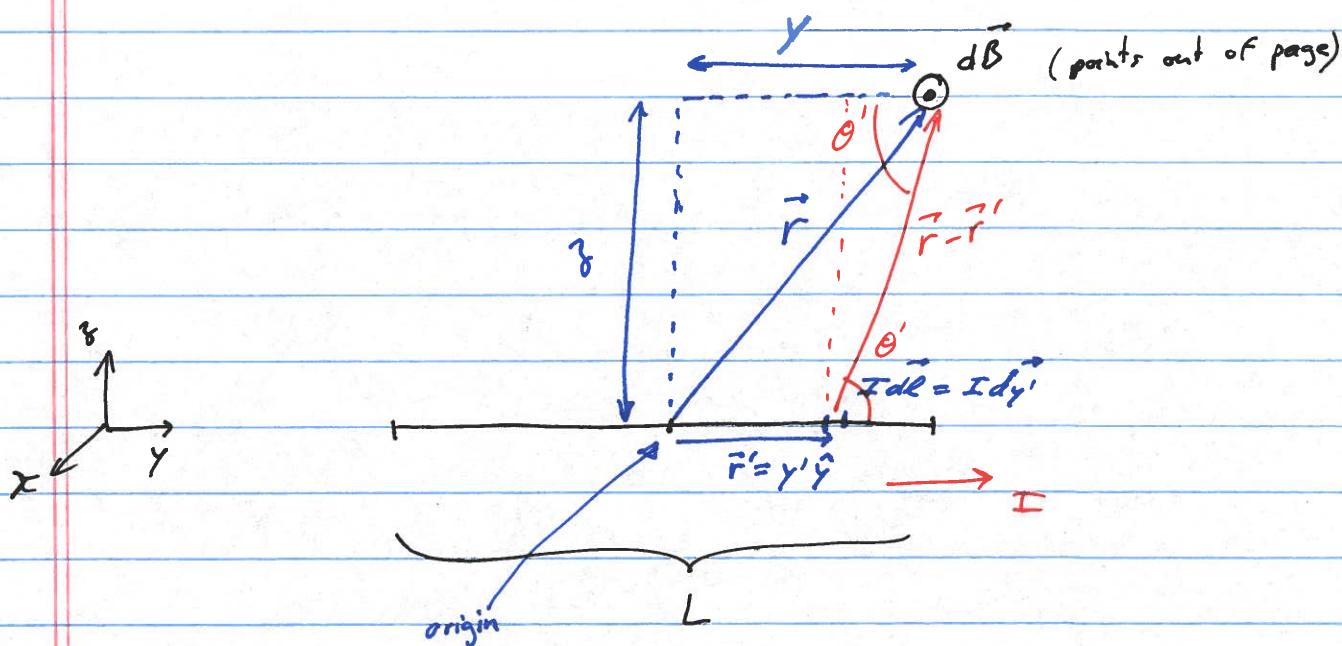 y
dB⃗ (points out of page)
θ'
r⃗
r⃗ - r⃗'
z
z
θ'
Idl⃗ = Idy⃗'
y
x
r⃗' = y'ŷ
I
L
origin